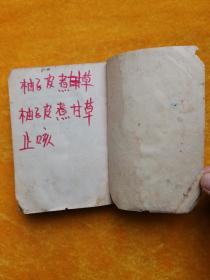 柚子皮煮甘草
柚子皮煮甘草
止咳